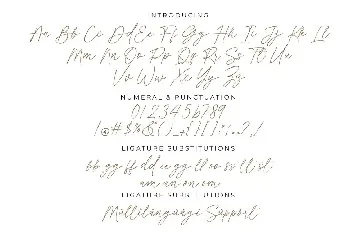 INTRODUCING
Aa Bb Cc Dd Ee Ff Gg Hh Ii Jj Kk Ll
Mm Nn Oo Pp Qq Rr Ss Tt Uu
Vv Ww Xx Yy Zz
NUMERAL & PUNCTUATION
0123456789
LIGATURE SUBSTITUTIONS
LIGATURE SUBSTITUTIONS
Multilanguage Support